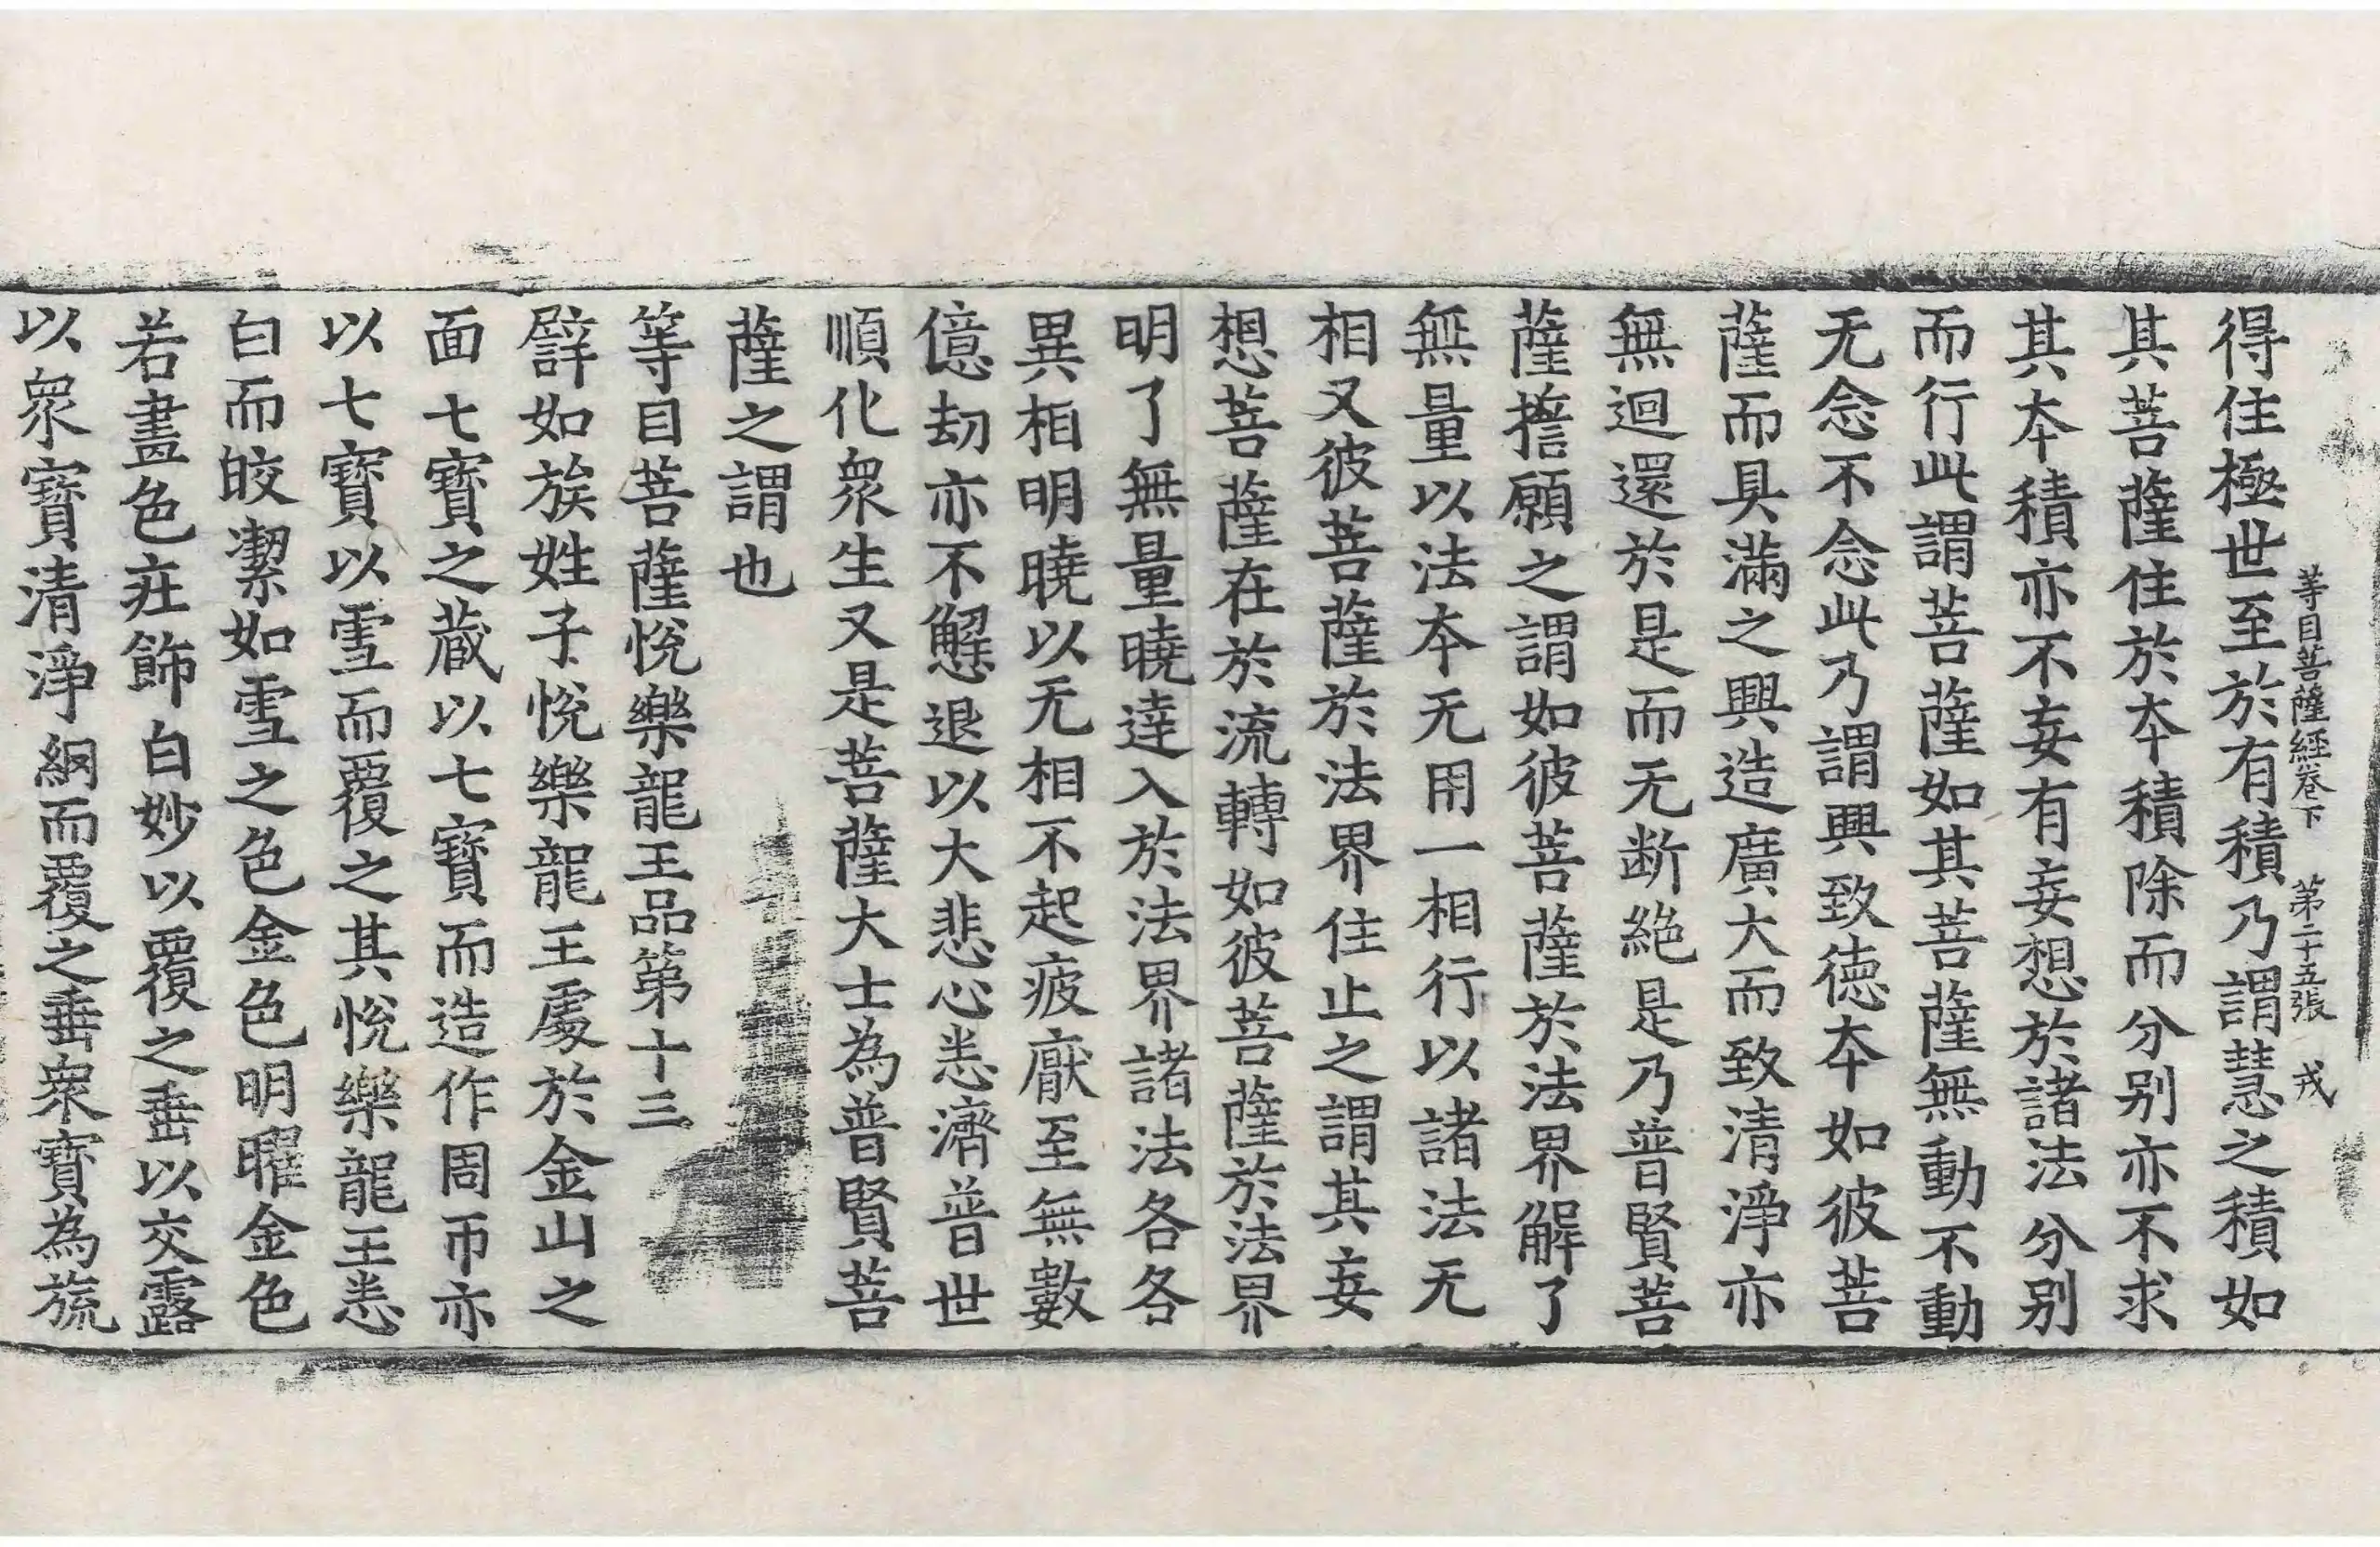 等目菩薩經卷下 第二十五張 戎
得住極世至於有積乃謂慧之積如
其菩薩住於本積除而分别亦不求
其本積亦不妄有妄想於諸法分别
而行此謂菩薩如其菩薩無動不動
无念不念此乃謂興致德本如彼菩
薩而具滿之興造廣大而致清淨亦
無迴還於是而无断絶是乃普賢菩
薩擔願之謂如彼菩薩於法界解了
無量以法本无用一相行以諸法无
相又彼菩薩於法界住止之謂其妄
想菩薩在於流轉如彼菩薩於法界
明了無量曉達入於法界諸法各各
異相明曉以无相不起疲猒至無數
億劫亦不懈退以大悲心悉濟普世
順化衆生又是菩薩大士為普賢菩
薩之謂也
等目菩薩悅樂龍王品第十三
辟如族姓子悅樂龍王處於金山之
面七寶之蔵以七寶而造作周帀亦
以七寶以雪而覆之其悅樂龍王悉
白而皎潔如雪之色金色明曜金色
若晝色㽵飾白妙以覆之垂以交露
以衆寶清淨網而覆之垂衆寶為旒